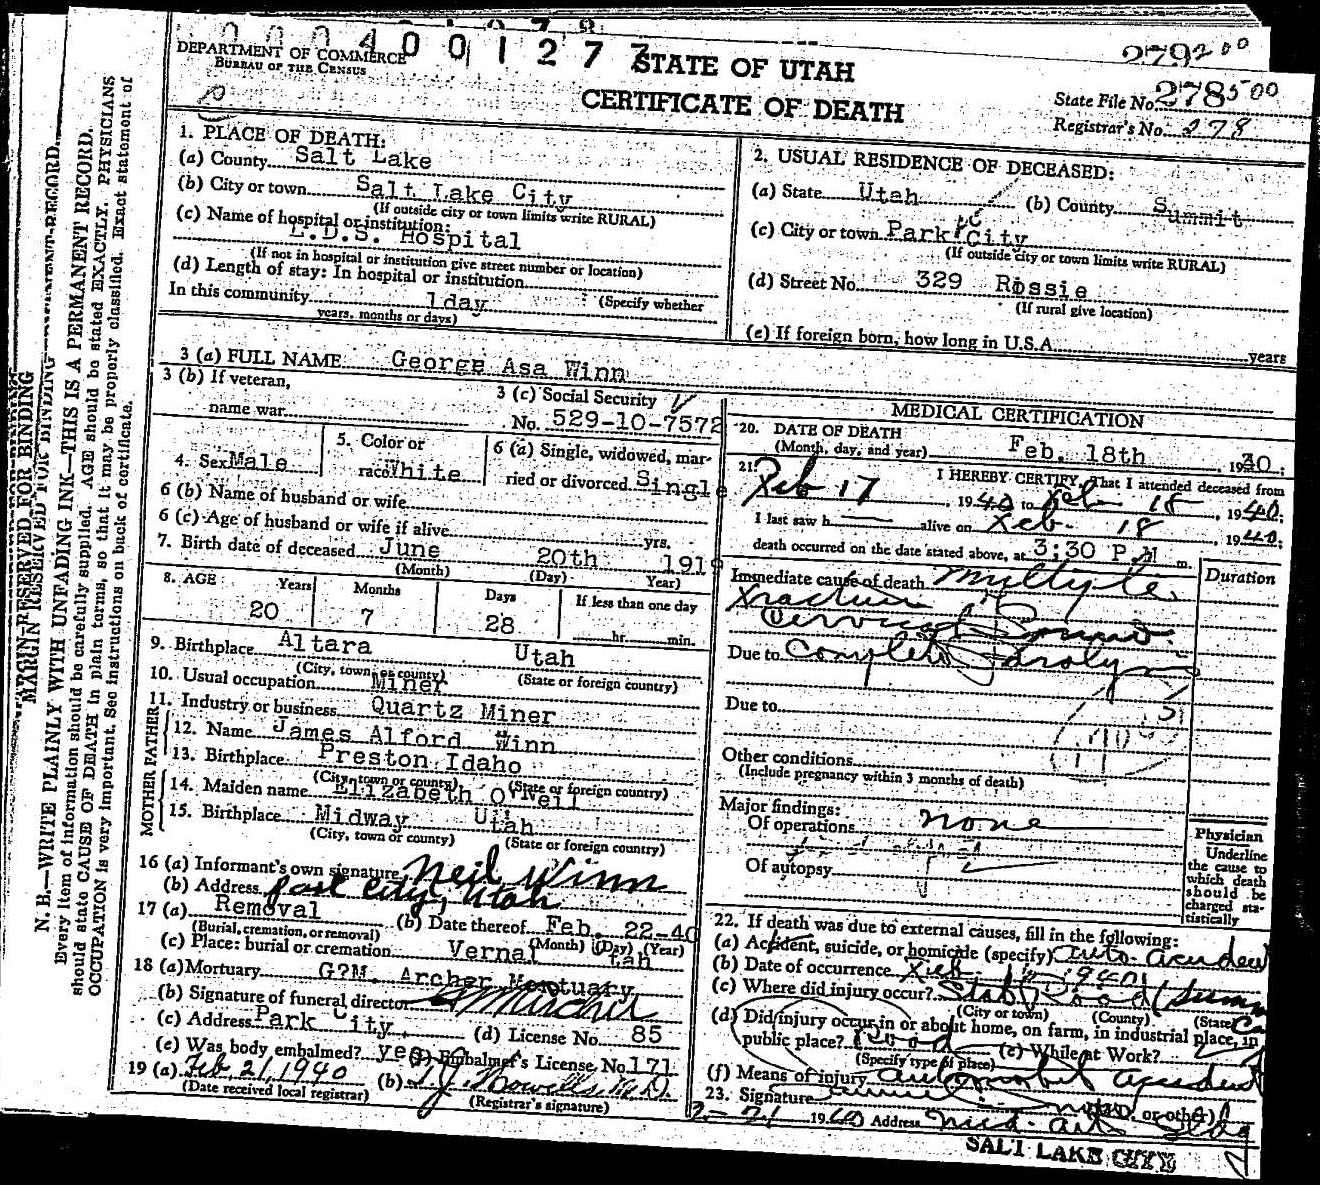 0 0 0 4 0 0 1 2 7 7
279200
DEPARTMENT OF COMMERCE
BUREAU OF THE CENSUS
STATE OF UTAH
CERTIFICATE OF DEATH
State File No. 278500
Registrar's No. 278
1. PLACE OF DEATH:
(a) County Salt Lake
(b) City or town Salt Lake City
(If outside city or town limits write RURAL)
(c) Name of hospital or institution:
L.D.S. Hospital
(If not in hospital or institution give street number or location)
(d) Length of stay: In hospital or institution
In this community 1day (Specify whether
years, months or days)
2. USUAL RESIDENCE OF DECEASED:
(a) State Utah (b) County Summit
(c) City or town Park City
(If outside city or town limits write RURAL)
(d) Street No. 329 Rossie
(If rural give location)
(e) If foreign born, how long in U.S.A. years
3 (a) FULL NAME George Asa Winn
3 (b) If veteran,
name war
3 (c) Social Security
No. 529-10-7572
4. Sex Male
5. Color or
race White
6 (a) Single, widowed, mar-
ried or divorced Single
6 (b) Name of husband or wife
6 (c) Age of husband or wife if alive yrs.
7. Birth date of deceased June 20th 1919
(Month) (Day) Year)
8. AGE Years Months Days If less than one day
20 7 28 hr. min.
9. Birthplace Altara Utah
(City, town or county) (State or foreign country)
10. Usual occupation Miner
11. Industry or business Quartz Miner
FATHER
12. Name James Alford Winn
13. Birthplace Preston Idaho
(City, town or county) (State or foreign country)
MOTHER
14. Maiden name Elizabeth O'Neil
15. Birthplace Midway Utah
(City, town or county) (State or foreign country)
16 (a) Informant's own signature Neil Winn
(b) Address Park City, Utah
17 (a) Removal (b) Date thereof Feb. 22-40
(Burial, cremation, or removal) (Month) (Day) (Year)
(c) Place: burial or cremation Vernal Utah
18 (a) Mortuary G?M. Archer Mortuary
(b) Signature of funeral director G M Archer
(c) Address Park City (d) License No. 85
(e) Was body embalmed? yes (f) Embalmer's License No. 171
19 (a) Feb 21, 1940 (b)
(Date received local registrar) (Registrar's signature)
MEDICAL CERTIFICATION
20. DATE OF DEATH
(Month, day, and year) Feb. 18th , 1930 ;
21. I HEREBY CERTIFY, That I attended deceased from
Feb 17 , 1940 to Feb 18 , 1940 ;
I last saw h alive on Feb. 18 , 1940 ;
death occurred on the date stated above, at 3:30 P M m.
Duration
Immediate cause of death Multiple
Fracture
Cervical
Due to Complete Paralysis
Due to
Other conditions
(Include pregnancy within 3 months of death)
Major findings:
Of operations none
Of autopsy
Physician
Underline
the cause to
which death
should be
charged sta-
tistically
22. If death was due to external causes, fill in the following:
(a) Accident, suicide, or homicide (specify) Auto accident
(b) Date of occurrence Feb. 1940
(c) Where did injury occur? State Road (Summ
(City or town) (County) (State)
(d) Did injury occur in or about home, on farm, in industrial place, in
public place? Road (e) While at Work?
(Specify type of place)
(f) Means of injury automobile accident
23. Signature (M.D. or other)
2-21 1940 Address Med. Arts Bldg
SALT LAKE CITY
MARGIN RESERVED FOR BINDING
N. B.—WRITE PLAINLY WITH UNFADING INK—THIS IS A PERMANENT RECORD.
Every item of information should be carefully supplied. AGE should be stated EXACTLY. PHYSICIANS
should state CAUSE OF DEATH in plain terms, so that it may be properly classified. Exact statement of
OCCUPATION is very important. See instructions on back of certificate.